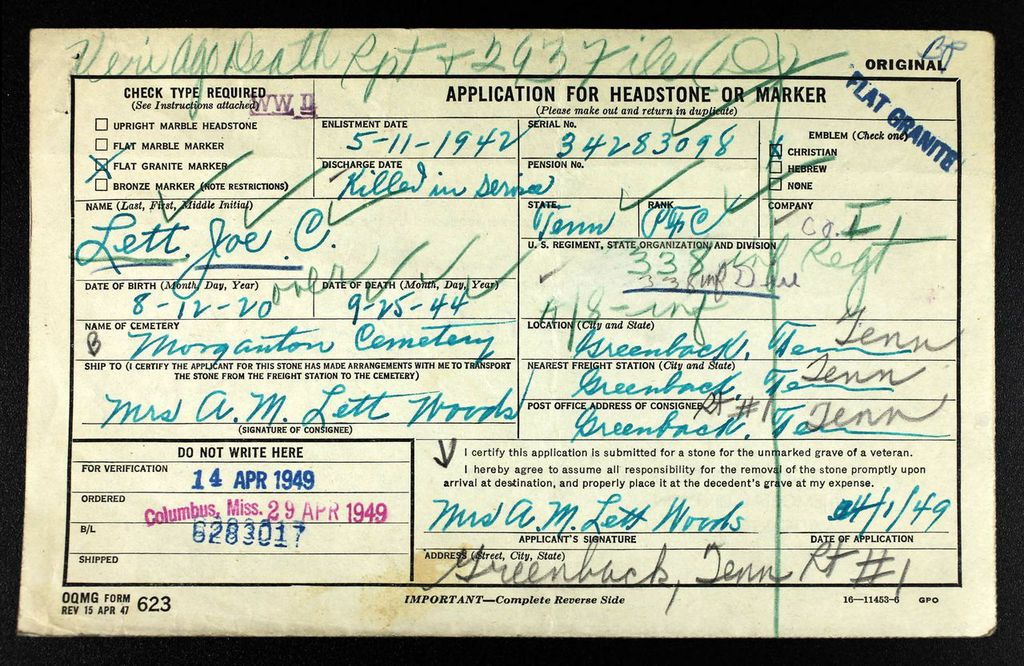 Veri Ago Death Rpt + 293 File (D)
ORIGINAL
CHECK TYPE REQUIRED
(See Instructions attached)
WW II
APPLICATION FOR HEADSTONE OR MARKER
(Please make out and return in duplicate)
FLAT GRANITE
UPRIGHT MARBLE HEADSTONE
FLAT MARBLE MARKER
FLAT GRANITE MARKER
BRONZE MARKER (NOTE RESTRICTIONS)
ENLISTMENT DATE
5-11-1942
DISCHARGE DATE
Killed in service
SERIAL No.
34283098
PENSION No.
EMBLEM (Check one)
CHRISTIAN
HEBREW
NONE
NAME (Last, First, Middle Initial)
Lett. Joe C.
STATE
Tenn
RANK
Pfc
COMPANY
Co. I
U. S. REGIMENT, STATE ORGANIZATION, AND DIVISION
338 inf Regt
338 inf Div
DATE OF BIRTH (Month, Day, Year)
8-12-20
over
DATE OF DEATH (Month, Day, Year)
9-25-44
NAME OF CEMETERY
B Morganton Cemetery
LOCATION (City and State)
Greenback, Tenn
SHIP TO (I CERTIFY THE APPLICANT FOR THIS STONE HAS MADE ARRANGEMENTS WITH ME TO TRANSPORT
THE STONE FROM THE FREIGHT STATION TO THE CEMETERY)
Mrs A. M. Lett Woods
(SIGNATURE OF CONSIGNEE)
NEAREST FREIGHT STATION (City and State)
Greenback, Tenn
POST OFFICE ADDRESS OF CONSIGNEE
Rt #1
Greenback, Tenn
DO NOT WRITE HERE
FOR VERIFICATION
14 APR 1949
ORDERED
Columbus, Miss. 29 APR 1949
B/L
6283017
SHIPPED
I certify this application is submitted for a stone for the unmarked grave of a veteran.
I hereby agree to assume all responsibility for the removal of the stone promptly upon
arrival at destination, and properly place it at the decedent's grave at my expense.
Mrs A. M. Lett Woods
4/1/49
APPLICANT'S SIGNATURE
DATE OF APPLICATION
ADDRESS (Street, City, State)
Greenback, Tenn Rt #1
OQMG FORM
REV 15 APR 47 623
IMPORTANT—Complete Reverse Side
16—11453-6 GPO